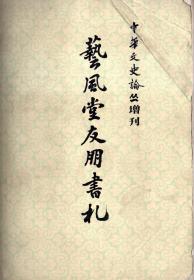 中华文史論丛增刊
藝風堂友朋書札